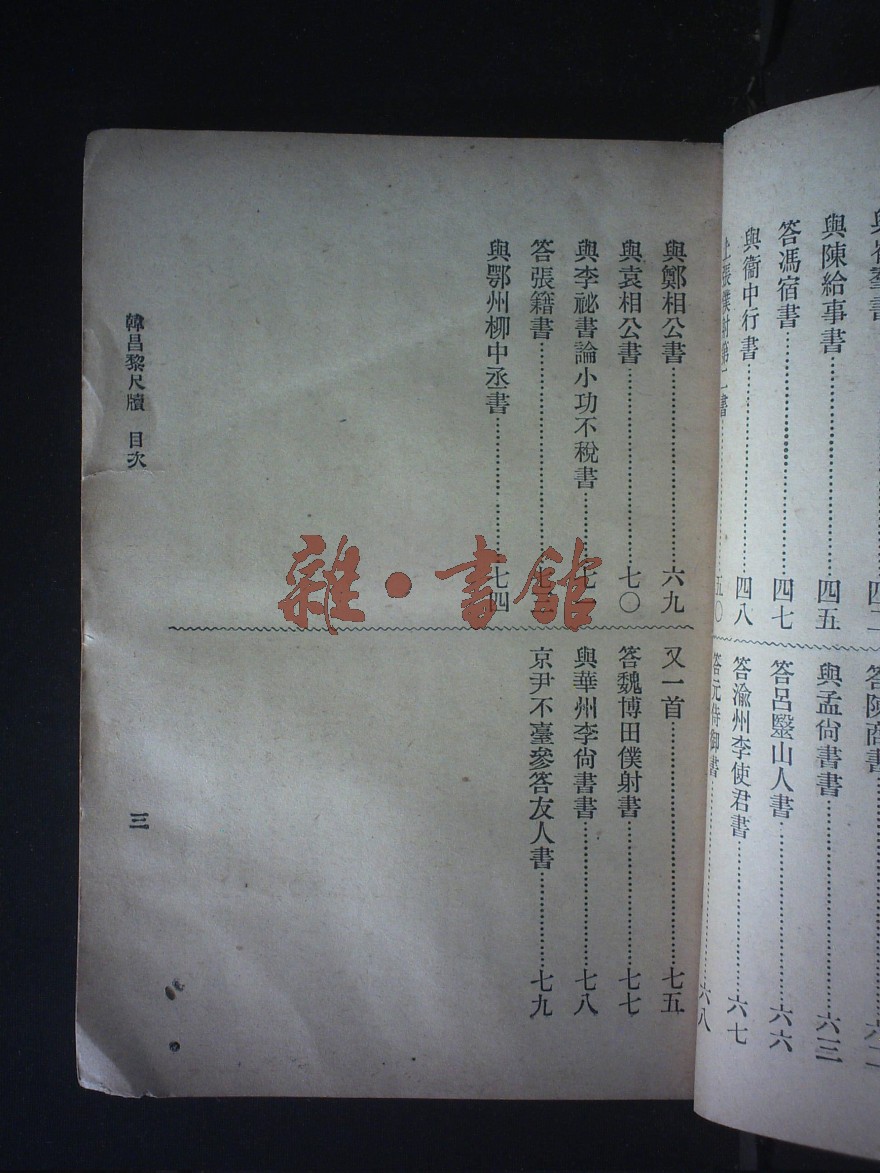 與陳給事書……四五
答馮宿書……四七
與衞中行書……四八
上張僕射第二書……五〇
與孟尙書書……六三
答呂毉山人書……六六
答渝州李使君書……六七
答元侍御書……六八
與鄭相公書……六九
與袁相公書……七〇
與李祕書論小功不稅書……七
答張籍書……七
與鄂州柳中丞書……七四
又一首……七五
答魏博田僕射書……七七
與華州李尙書書……七八
京尹不臺參答友人書……七九
韓昌黎尺牘 目次
三
雜·書館